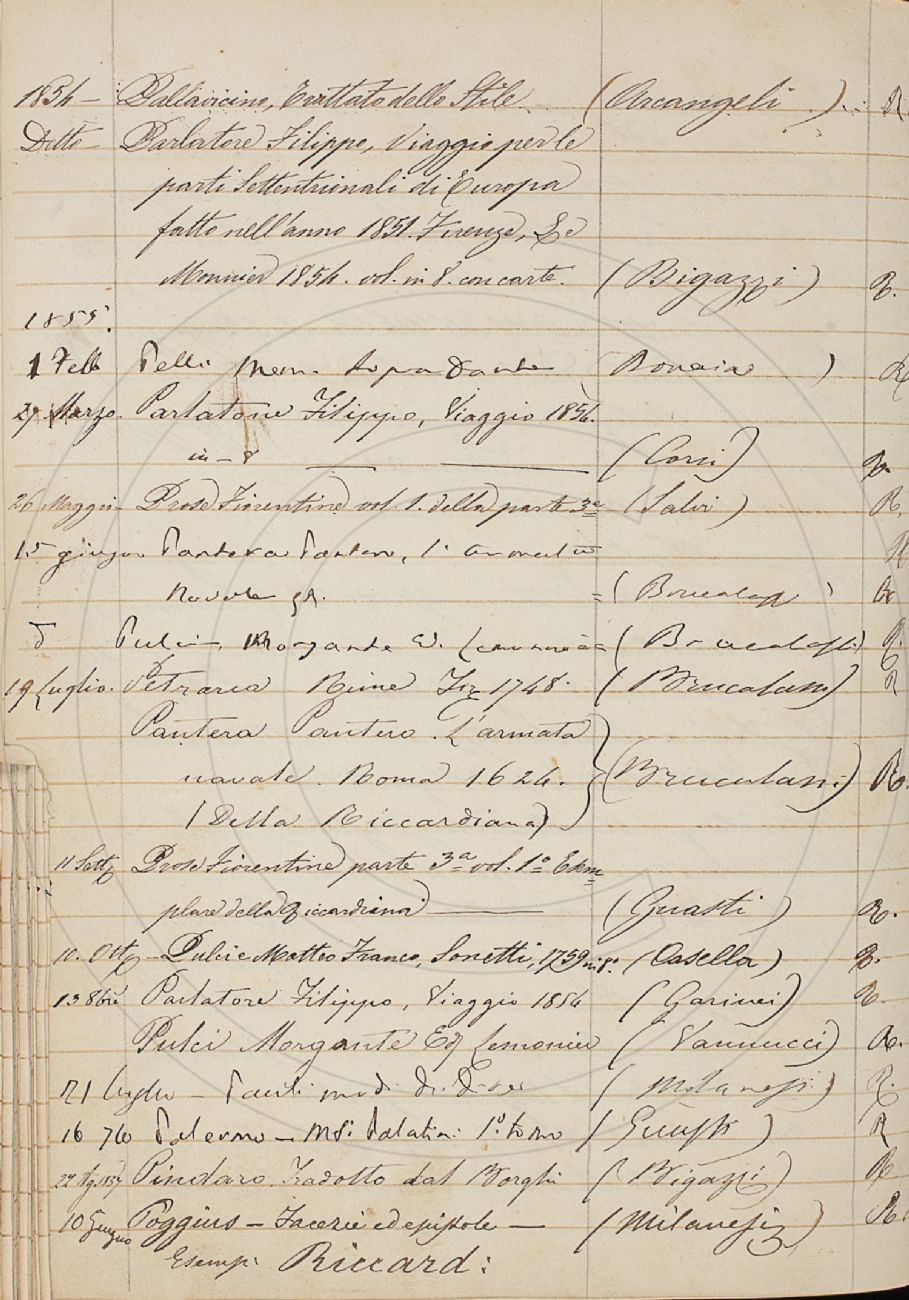 1854 – Pallavicino, Trattato dello Stile (Arcangeli) R
Detto – Parlatore Filippo, Viaggio per le
parti Settentrionali di Europa
fatto nell'anno 1851. Firenze, Le
Monnier 1854. vol. in 8. con carte. (Bigazzi) R.
1855.
1 Febb Pelli Mem. sopra Dante ) R
27 Marzo. Parlatore Filippo, Viaggio 1854.
in – 8 (Corsi) R
26 Maggio – Prose Fiorentine vol. 1. della parte 3a (Salvi) R.
15 giugno Pantera Pantero, l'armata R
Navale = ( ) R
Pulci – Morgante Ed. Lemonnier = (Brucalassi) R.
19 Luglio. Petrarca Rime 1748. (Brucalassi) R
Pantera Pantero. L'armata
navale. Roma 1624. (Brucalassi) R.
(Della Riccardiana)
11 Sett Prose Fiorentine parte 3a vol. 1o Esem
plare della Riccardiana — (Guasti) R.
10. Ott – Pulci e Matteo Franco, Sonetti, 1759 in 8o. (Casella) R.
13 8bre Parlatore Filippo, Viaggio 1854 (Garinei) R.
Pulci Morgante Ed Lemonier (Vannucci) R.
21 Luglio – modi di dire (Milanesi) R.
16 Palermo – MSi Palatini 1o. tomo (Guasti) R
Pindaro. Tradotto dal Borghi (Bigazzi) R
10 Giugno Poggius – Facezie ed epistole – (Milanesi) R.
Esemp: Riccard: